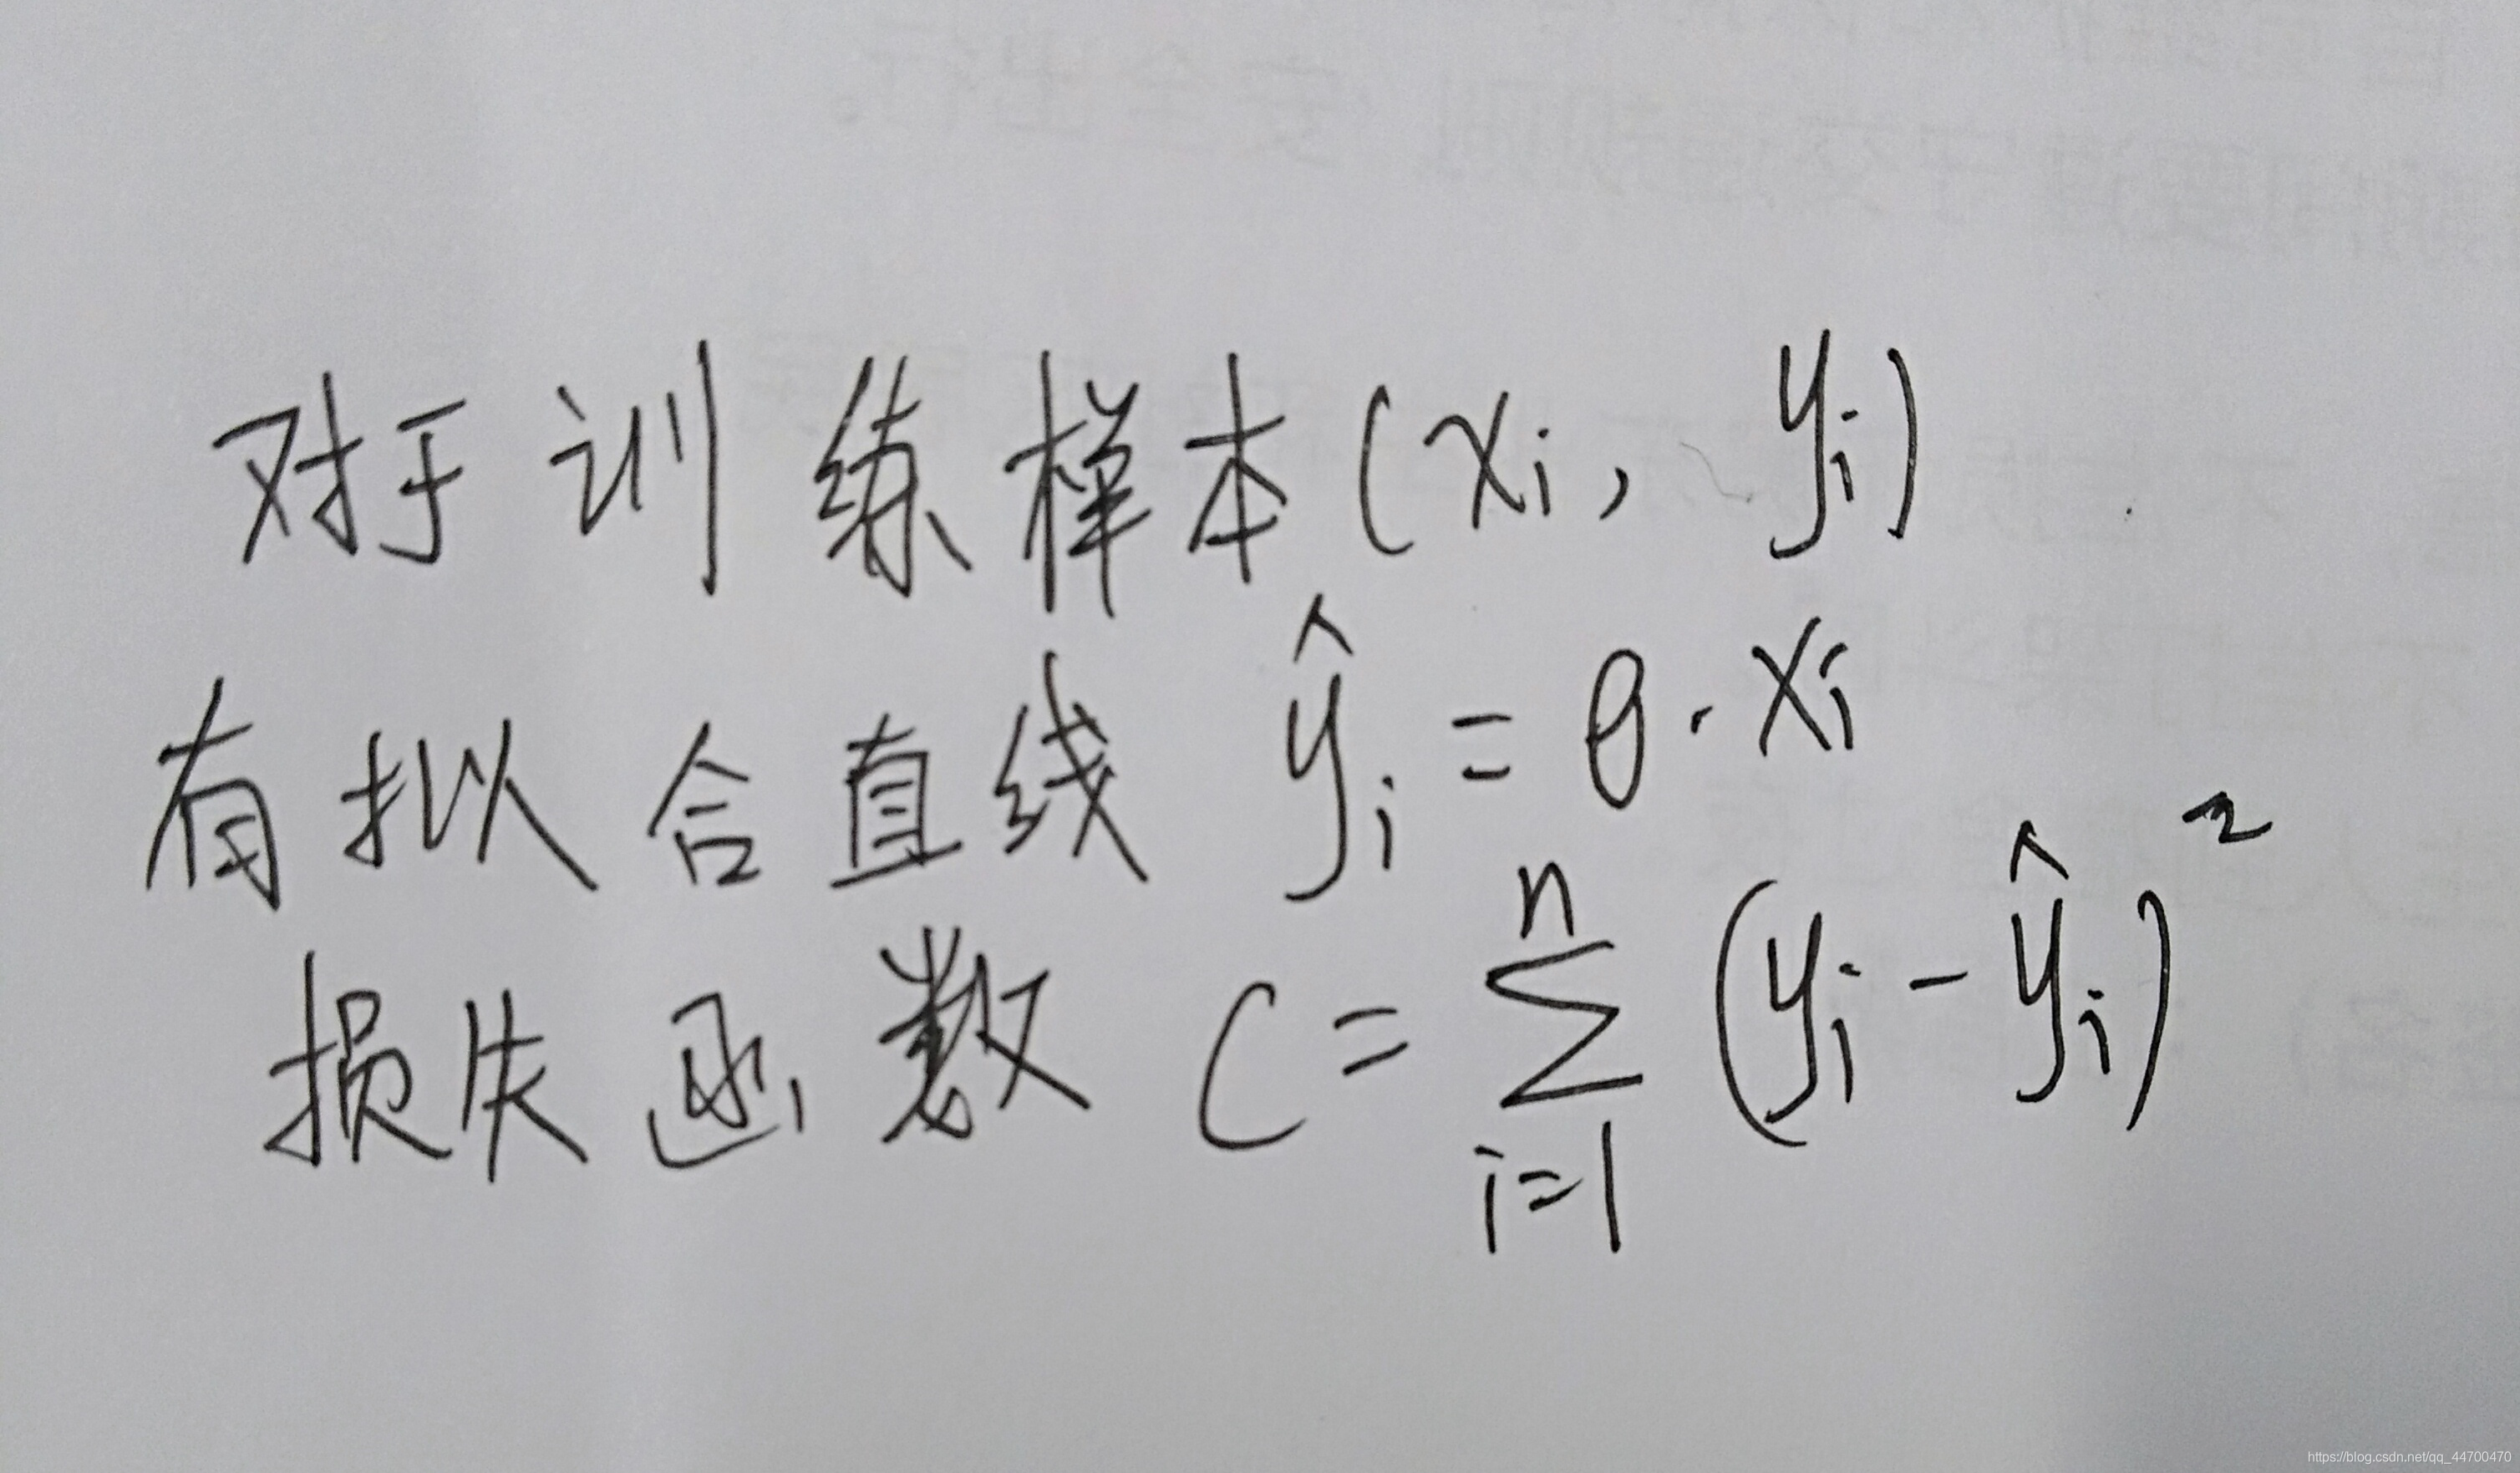 对于训练样本(xi, yi)
有拟合直线 ŷi = θ · xi
损失函数 C = ∑ⁿᵢ₌₁ (yi - ŷi)²
https://blog.csdn.net/qq_44700470